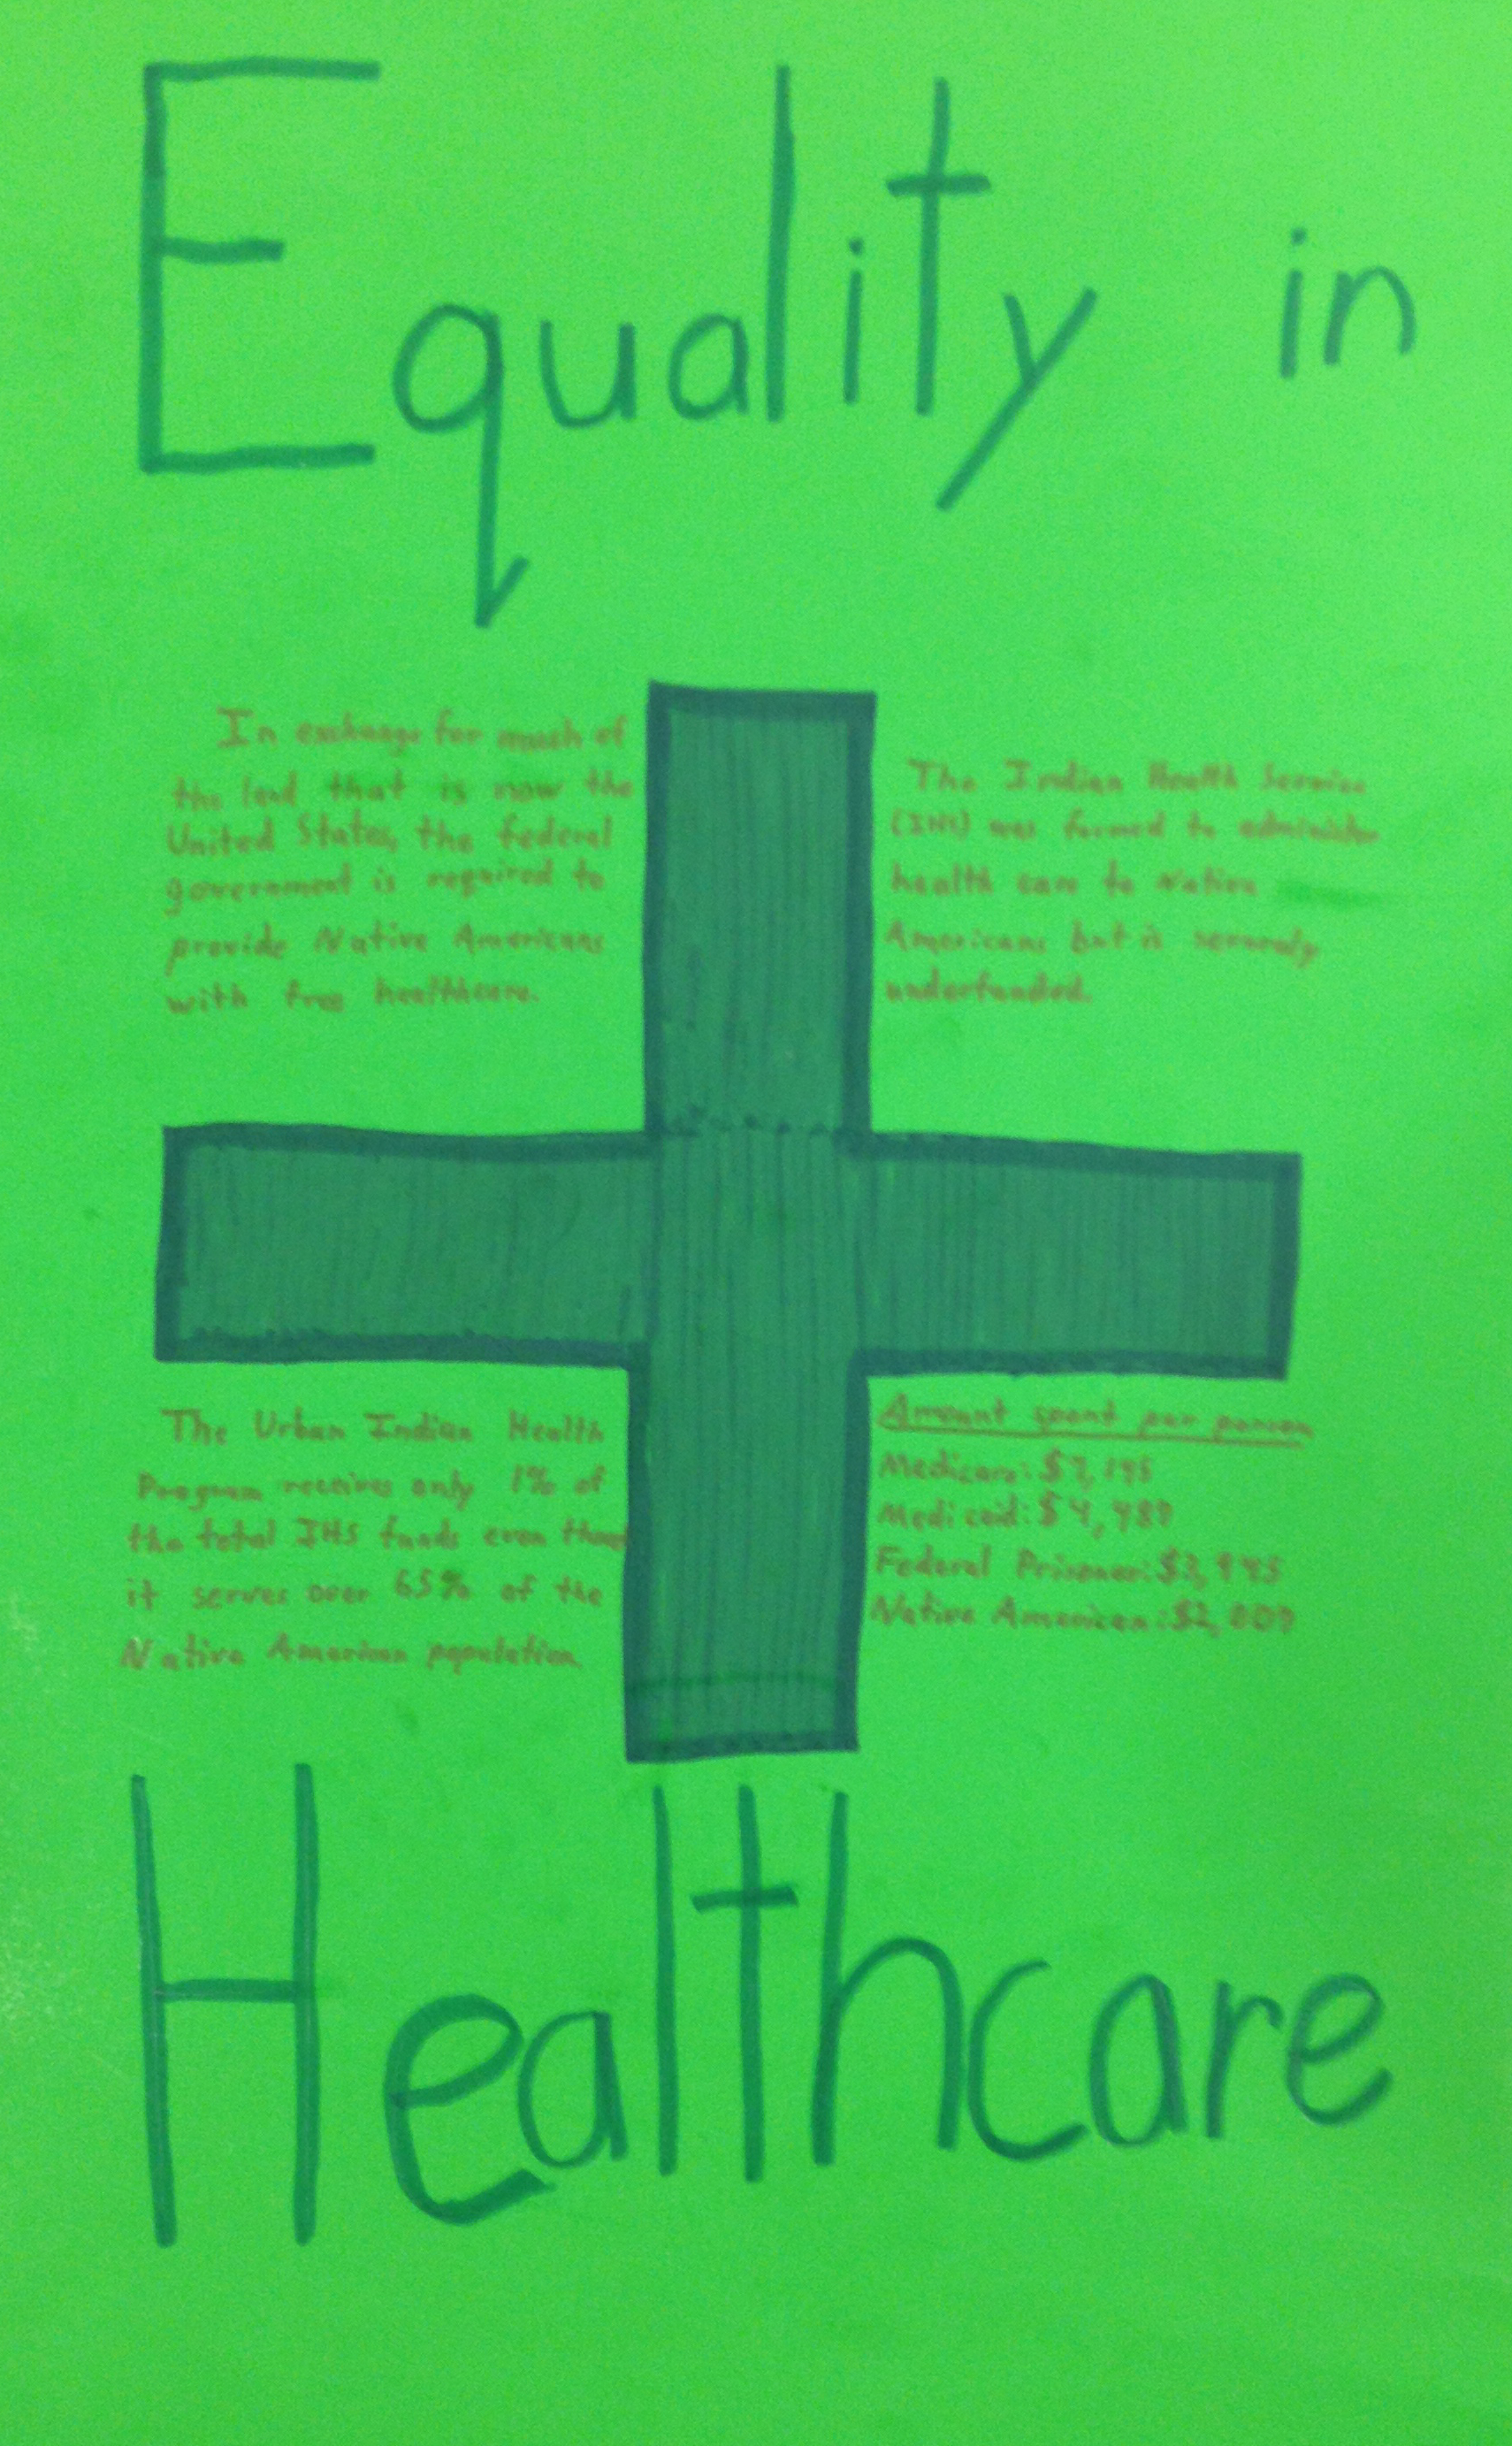 Equality in
In exchange for much of
the land that is now the
United States, the federal
government is required to
provide Native Americans
with free healthcare.
The Indian Health Service
(IHS) was formed to administer
health care to Native
Americans but is severely
underfunded.
The Urban Indian Health
Program receives only 1% of
the total IHS funds even though
it serves over 65% of the
Native American population
Amount spent per person
Medicare:
Medicaid:
Federal Prisoner:
Native American:
Healthcare